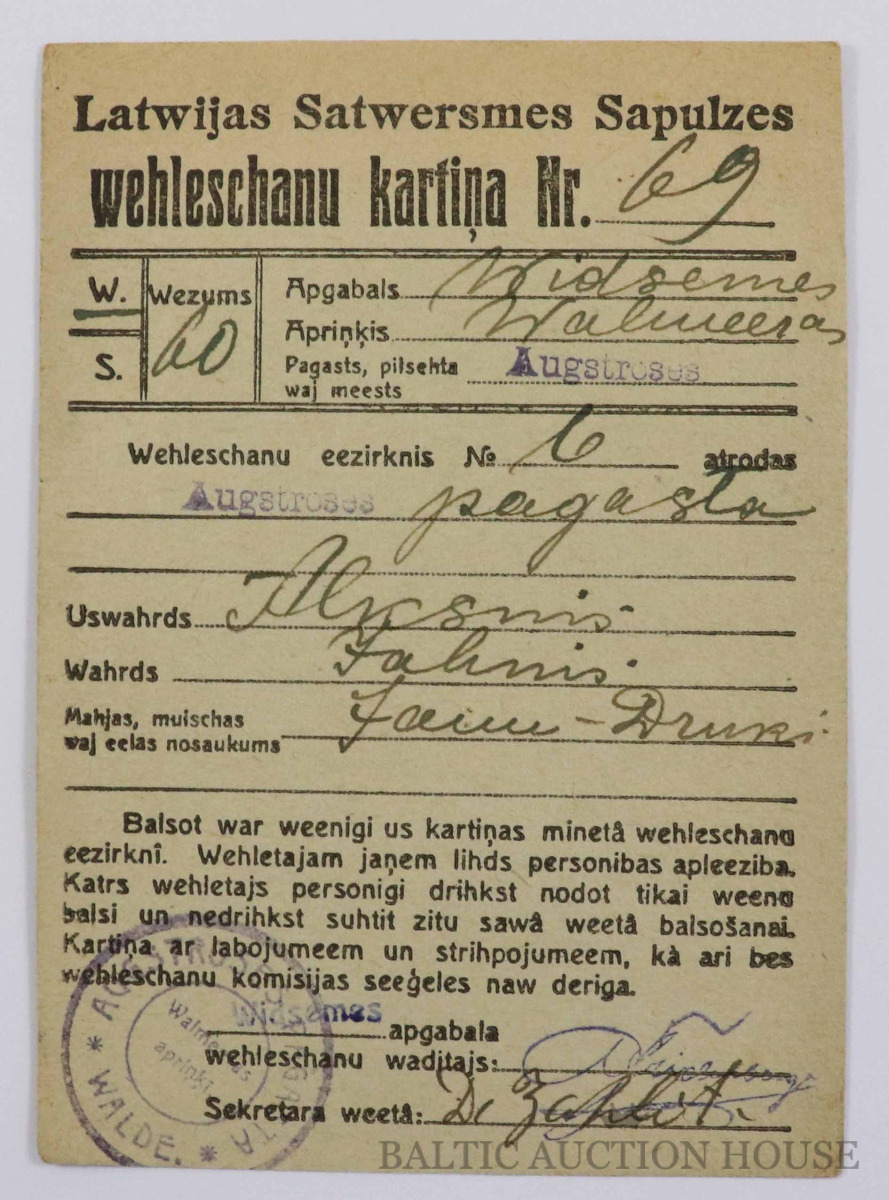 Latwijas Satwersmes Sapulzes
wehleschanu kartiņa Nr. 69
W.
S.
Wezums
60
Apgabals Widsemes
Apriņķis Walmeeras
Pagasts, pilsehta
waj meests Augstroses
Wehleschanu eezirknis № 6 atrodas
Augstroses pagasta
Uswahrds Alksnis
Wahrds Jahnis
Mahjas, muischas
waj eelas nosaukums Jaun-Druki
Balsot war weenigi us kartiņas minetâ wehleschanu
eezirknî. Wehletajam jaņem lihds personibas apleeziba.
Katrs wehletajs personigi drihkst nodot tikai weenu
balsi un nedrihkst suhtit zitu sawâ weetâ balsošanai.
Kartiņa ar labojumeem un strihpojumeem, kà ari bes
wehleschanu komisijas seeģeles naw deriga.
Widsemes apgabala
wehleschanu waditajs:
Sekretara weetâ:
WALDE.
Walmeeras
apriņķî
BALTIC AUCTION HOUSE